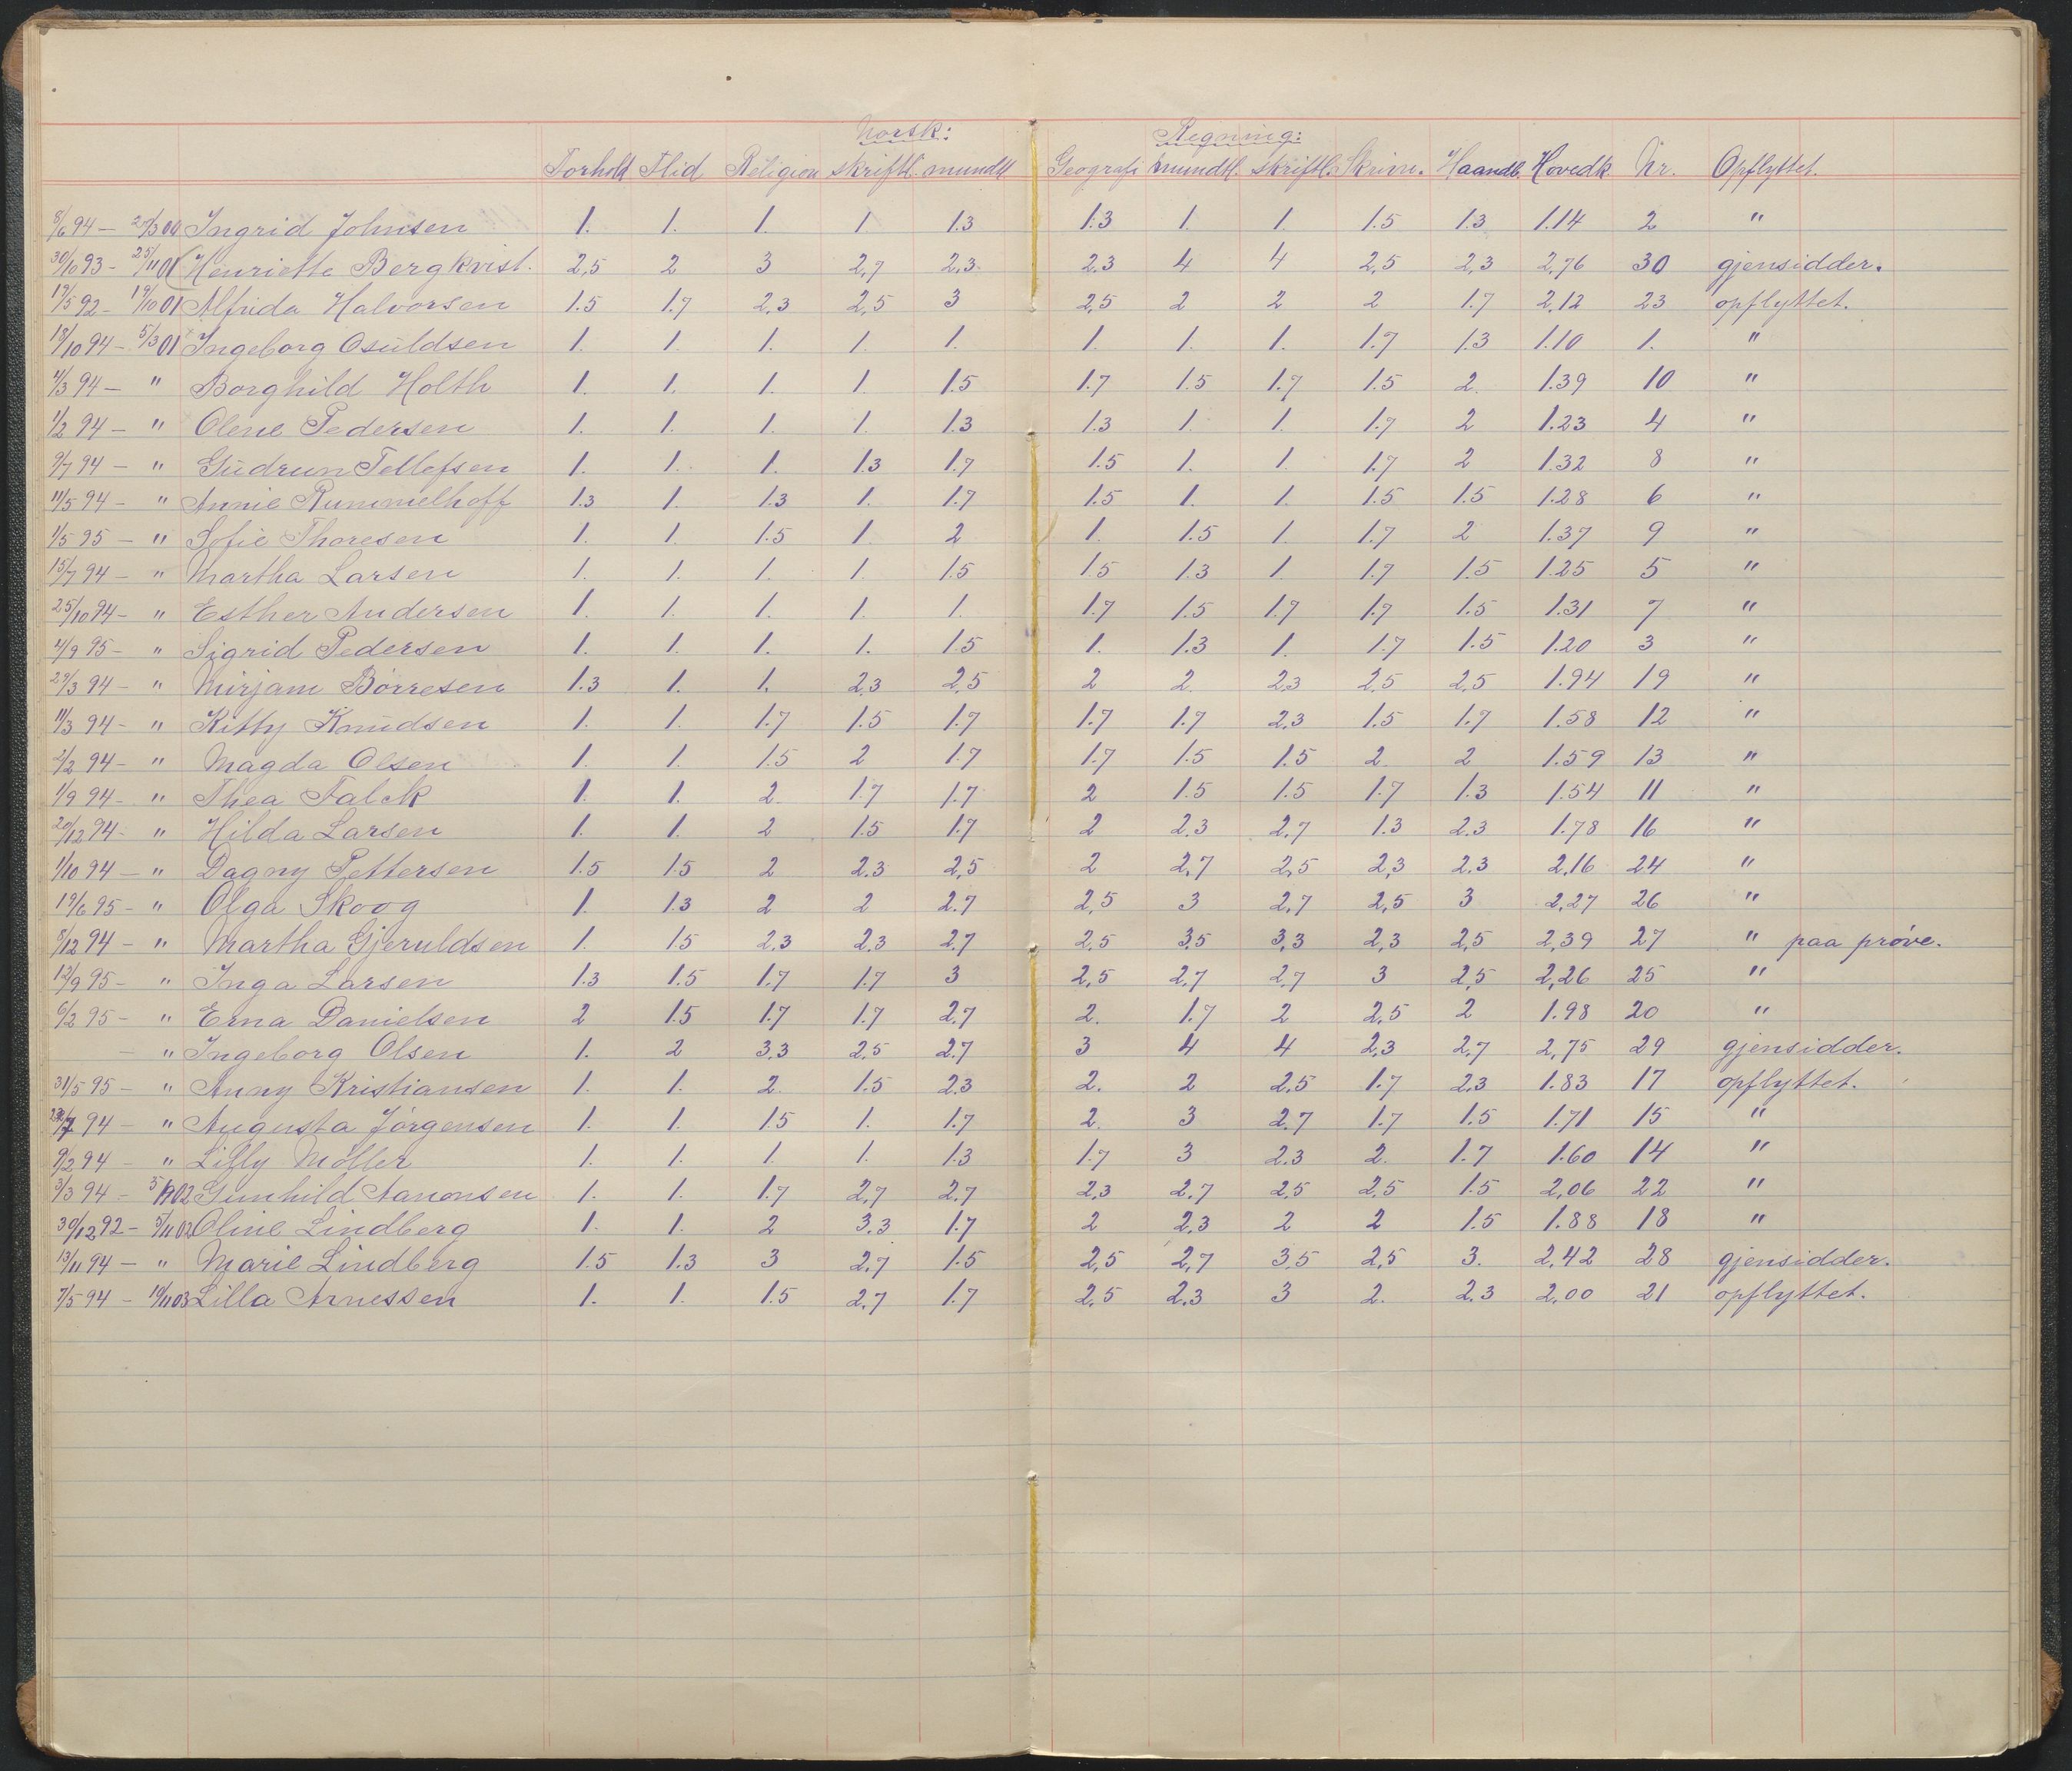 Norsk: Regning:
Forhold Flid Religion skriftl. mundtl. Geografi mundtl. skriftl. Skrivn. Haandb. Hovedk Nr. Opflyttet.
8/6 94 – 20/3 00 Ingrid Johnsen 1. 1. 1. 1 1.3 1.3 1. 1. 1.5 1.3 1.14 2 "
30/10 93 – 25/11 01 (Henriette Bergkvist. 2,5 2 3 2,7 2,3. 2.3 4 4 2,5 2,3 2,76 30 gjensidder.
19/5 92 – 19/10 01 Alfrida Halvorsen 1.5 1.7 2.3 2,5 3 2,5 2 2 2 1.7 2,12 23 opflyttet.
18/10 94 – 5/3 01 Ingeborg Osuldsen 1. 1. 1. 1. 1. 1. 1. 1. 1.7 1.3 1.10 1. "
4/3 94 – " Borghild Holth 1. 1. 1. 1. 1.5 1.7 1.5 1.7 1.5 2. 1.39 10 "
1/2 94 – " Olene Pedersen 1. 1. 1. 1. 1.3 1.3 1. 1. 1.7 2 1.23 4 "
9/7 94 – " Gudrun Tellefsen 1. 1. 1. 1.3 1.7 1.5 1. 1. 1.7 2 1.32 8 "
11/5 94 – " Annie Rummelhoff 1.3 1. 1.3 1. 1.7 1.5 1. 1. 1.5 1.5 1.28 6 "
1/5 95 – " Sofie Thoresen 1. 1. 1.5 1. 2 1. 1.5 1. 1.7 2 1.37 9 "
15/7 94 – " Martha Larsen 1. 1. 1. 1. 1.5 1.5 1.3 1. 1.7 1.5 1.25 5 "
25/10 94 – " Esther Andersen 1. 1. 1. 1. 1. 1.7 1.5 1.7 1.7 1.5 1.31 7 "
4/9 95 – " Sigrid Pedersen 1. 1. 1. 1. 1.5 1. 1.3 1. 1.7 1.5 1.20 3 "
29/3 94 – " Mirjam Börresen 1.3 1. 1. 2.3 2,5 2 2. 2.3 2,5 2,5 1.94 19 "
11/3 94 – " Kitty Knudsen 1. 1. 1.7 1.5 1.7 1.7 1.7 2.3 1.5 1.7 1.58 12 "
2/2 94 – " Magda Olsen 1. 1. 1.5 2 1.7 1.7 1.5 1.5 2. 2 1.59 13 "
1/9 94 – " Thea Falck 1. 1. 2. 1.7 1.7 2 1.5 1.5 1.7 1.3 1.54 11 "
20/12 94 – " Hilda Larsen 1. 1. 2 1.5 1.7 2 2.3 2,7 1.3 2.3 1.78 16 "
1/10 94 – " Dagny Pettersen 1.5 1.5 2 2.3 2,5 2 2,7 2,5 2,3 2.3 2,16 24 "
19/6 95 – " Olga Skoog 1. 1.3 2 2 2.7 2,5 3 2,7 2,5 3 2,27 26 "
8/12 94 – " Martha Gjeruldsen 1. 1.5 2.3 2.3 2.7 2,5 3.5 3,3 2,3 2,5 2,39 27 " paa prøve.
12/9 95 – " Inga Larsen 1.3 1.5 1.7 1.7 3 2,5 2,7 2,7 3 2,5 2,26 25 "
6/2 95 – " Erna Danielsen 2 1.5 1.7 1.7 2,7 2. 1.7 2 2,5 2 1.98 20 "
– " Ingeborg Olsen 1. 2 3.3 2,5 2.7 3 4 4 2,3 2,7 2,75 29 gjensidder.
31/5 95 – " Anny Kristiansen 1. 1. 2. 1.5 2.3 2. 2 2,5 1.7 2.3 1.83 17 opflyttet.
/7 94 – " Augusta Jørgensen 1. 1. 1.5 1. 1.7 2. 3 2.7 1.7 1.5 1.71 15 "
9/2 94 – " Lilly Möller 1. 1. 1. 1. 1.3 1.7 3 2.3 2. 1.7 1.60 14 "
3/3 94 – 02 Gunhild Aanonsen 1. 1. 1.7 2,7 2.7 2,3 2,7 2,5 2,5 1.5 2,06 22 "
30/12 92 – 3/11 02 Oline Lindberg 1. 1. 2 3.3 1.7 2 2,3 2 2 1.5 1.88 18 "
13/11 94 – " Marie Lindberg 1.5 1.3 3 2,7 1.5 2,5 2,7 3.5 2,5 3. 2,42 28 gjensidder.
7/5 94 – 10/11 03 Lilla Arnessen 1. 1. 1.5 2,7 1.7 2,5 2.3 3 2. 2.3 2,00 21 opflyttet.